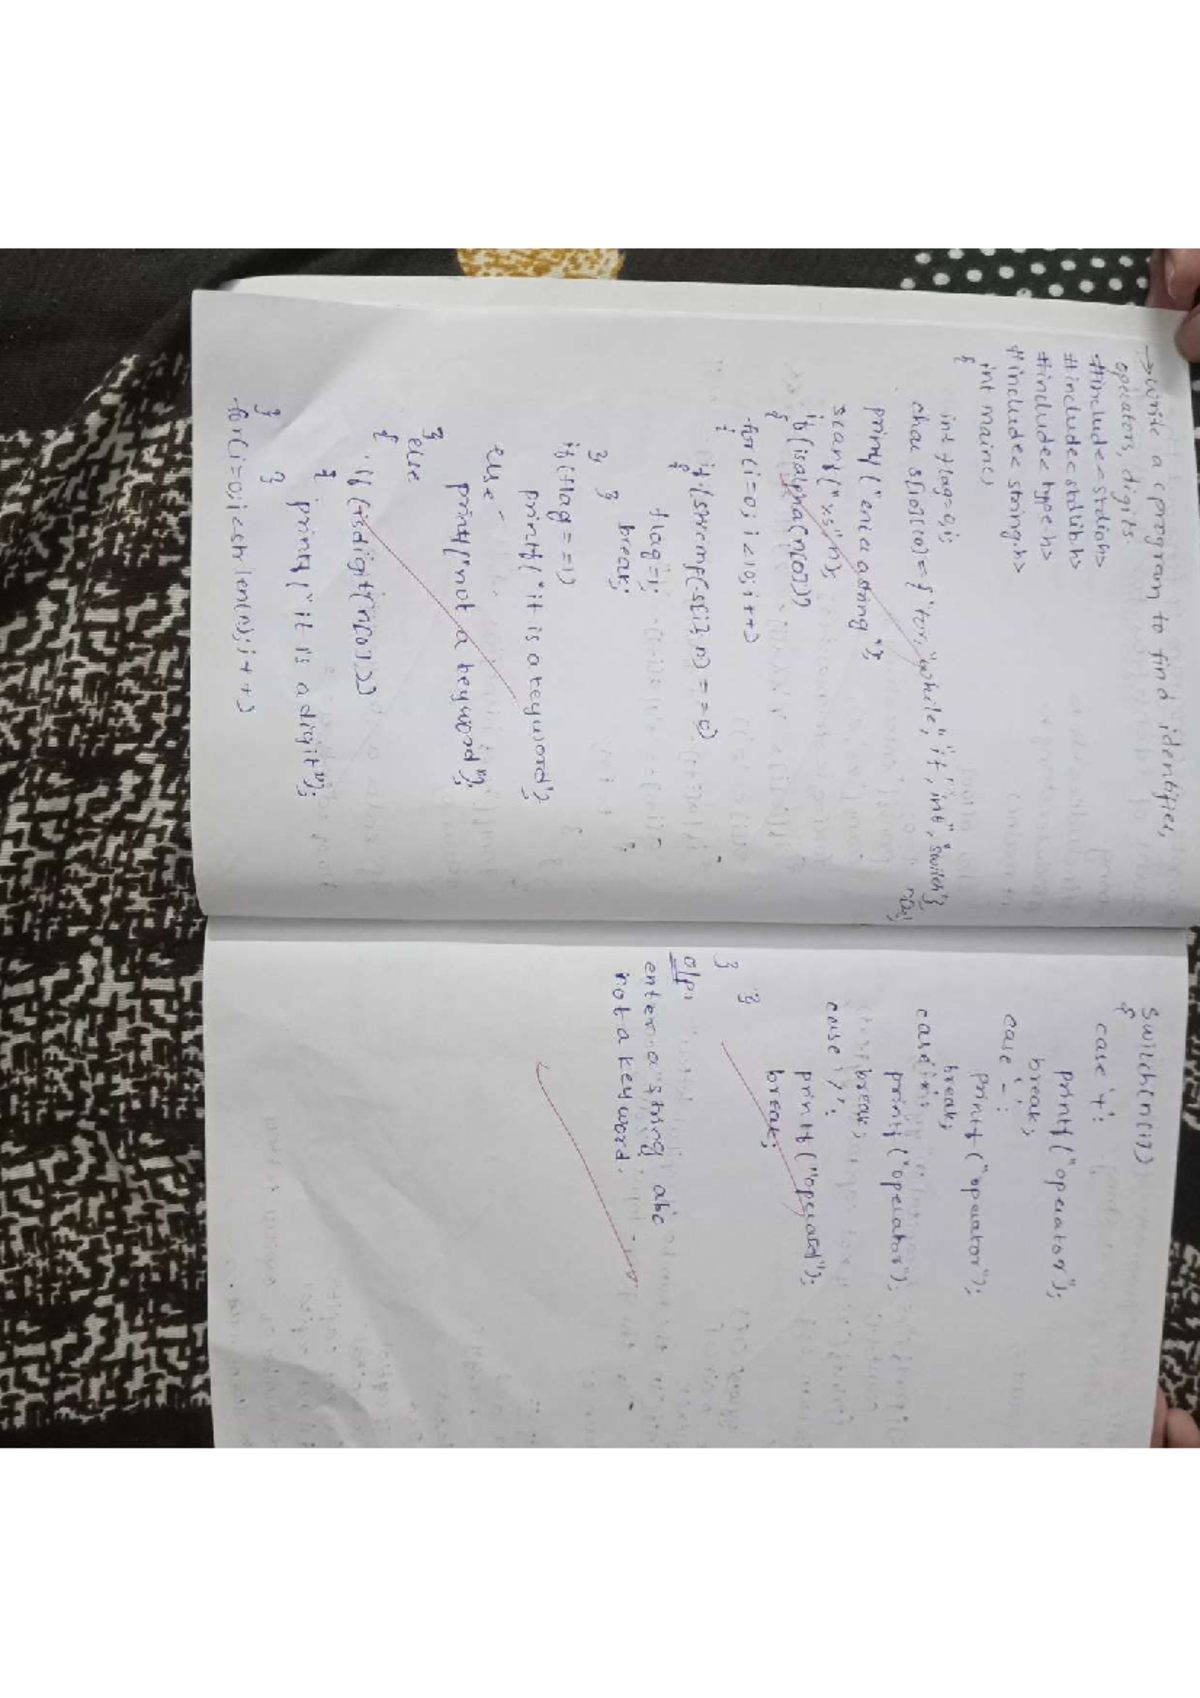 → Write a c program to find identifier,
operators, digits.
#include<stdio.h>
#include<stdlib.h>
#include<type.h>
#include<string.h>
int main()
{
int flag=0,i;
char s[10][10]={"for","while","if","int","switch"},
printf("enter a string");
scanf("%s",n);
if(isalpha(n[0]))
{
for(i=0;i<10;i++)
{
if(strcmp(s[i],n)==0)
{
flag=1;
break;
}
}
if(flag==1)
printf("it is a keyword");
else
printf("not a keyword");
}
else
{
if(isdigit(n[0]))
printf("it is a digit");
}
}
}
for(i=0;i<strlen(n);i++)
switch(n[i])
{
case '+':
printf("operator");
break;
case '-':
printf("operator");
break;
case
printf("operator");
break;
case '/':
printf("operard");
break;
}
}
o/p:
enter a string abc
not a keyword.